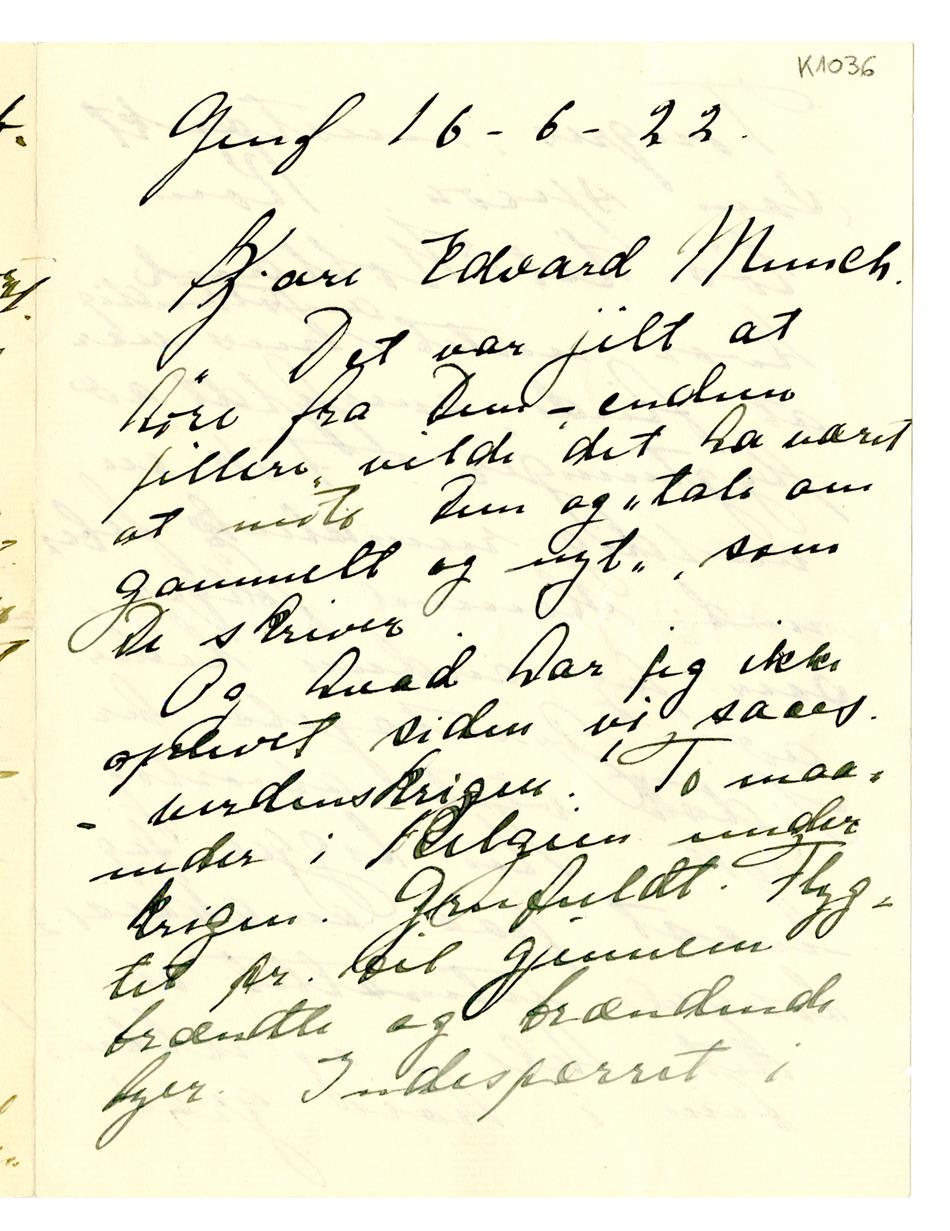 K1036
Genf 16-6-22.
Kjære Edvard Munch.
Det var jilt at
høre fra Dem – endnu
jillere vilde det ha været
at møte Dem og „tale om
gammelt og nyt„, som
De skriver.
Og hvad har jeg ikke
oplevet siden vi saaes.
- verdenskrigen. To maa-
neder i Belgien under
krigen. Grufuldt. Flyg-
tet pr. bil gjennem
brændte og brændende
byer. Indesperret i